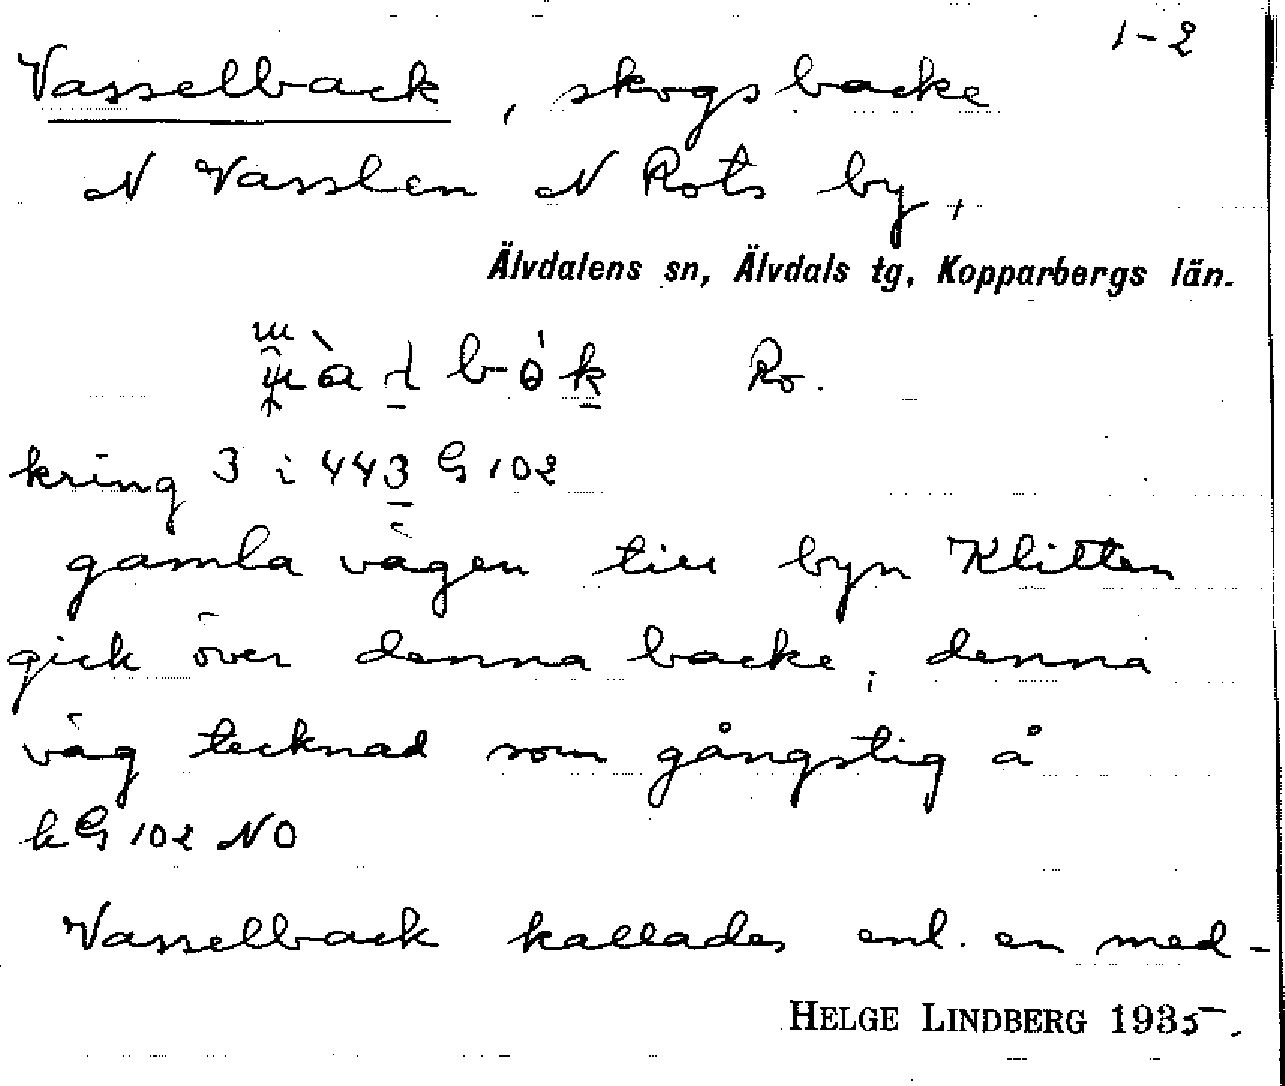 1-2
Vasselback, skogsbacke
N Vasslen N Rots by,
Älvdalens sn, Älvdals tg, Kopparbergs län.
Ro.
kring 3 i 443 G 102
gamla vägen till byn Klitten
gick över denna backe; denna
väg tecknad som gångstig å
kG 102 NO
Vasselback kallades enl. en med-
HELGE LINDBERG 1935.